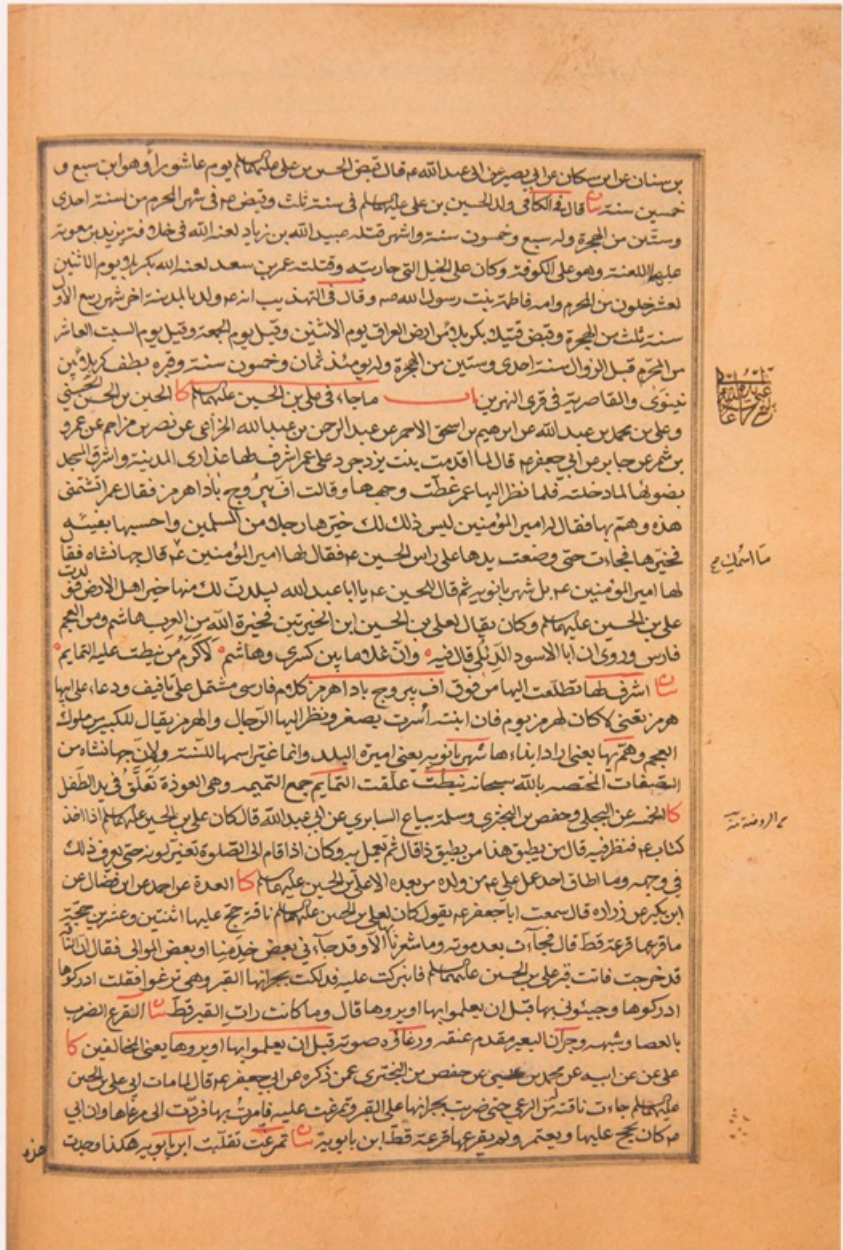 بن سنان عن ابن مسكان عن ابي بصير عن ابى عبد الله ع قال قبض الحسين بن على عليهما السلم يوم عاشورا وهو ابن سبع و
خمسين سنة قال فى الكافى ولد الحسين بن على عليهما السلم فى سنة ثلث وقبض ع فى شهر المحرم من سنة احدى
وستين من الهجرة وله سبع وخمسون سنة واشهر قتله عبيد الله بن زياد لعنه الله فى خلافة يزيد بن معوية
عليهما اللعنة وهو على الكوفة وكان على الخيل التى حاربته وقتلته عمر بن سعد لعنه الله بكربلا يوم الاثنين
لعشر خلون من المحرم وامه فاطمة بنت رسول الله ص وقال فى التهذيب انه ع ولد بالمدينة اخر شهر ربيع الاول
سنة ثلث من الهجرة وقبض قتيلا بكربلا من ارض العراق يوم الاثنين وقيل يوم الجمعة وقيل يوم السبت العاشر
من المحرم قبل الزوال سنة احدى وستين من الهجرة وله يومئذ ثمان وخمسون سنة وقبره بطف كربلا بين
نينوى والغاضرية فى قرى النهرين باب ما جاء فى على بن الحسين عليهما السلم كا الحسين بن الحسن الحسنى
وعلى بن محمد بن عبد الله عن ابرهيم بن اسحق الاحمر عن عبد الرحمن بن عبد الله الخزاعى عن نصر بن مزاحم عن عمرو
بن شمر عن جابر عن ابي جعفر ع قال لما اقدمت بنت يزدجرد على عمر اشرف لها عذارى المدينة واشرق المسجد
بضوئها لما دخلته فلما نظر اليها عمر غطت وجهها وقالت اف بيروج باداهرمز فقال عمر اتشتمنى
هذه وهم بها فقال له امير المؤمنين ليس ذلك لك خيرها رجلا من المسلمين واحسبها بفيئه
فخيرها فجاءت حتى وضعت يدها على راس الحسين ع فقال لها امير المؤمنين ع قال جهانشاه فقا
لها امير المؤمنين ع بل شهربانويه ثم قال للحسين ع يا ابا عبد الله ليلدن لك منها خير اهل الارض فولدت
على بن الحسين عليهما السلم وكان يقال لعلى بن الحسين ابن الخيرتين فخيرة الله من العرب هاشم ومن العجم
فارس وروى ان ابا الاسود الدئلى قال فيه وان غلاما بين كسرى وهاشم لاكرم من نيطت عليه التمايم
اشرف لها تطلعت اليها من فوق اف بيروج باداهرمز كلام فارسى مشتمل على تافيف ودعاء على ابيها
هرمز يعنى لا كان لهرمز يوم فان ابنته اسرت بصغر ونظر اليها الرجال والهرمز يقال للكبير من ملوك
العجم وهم بها يعنى اراد ايذاءها شهربانويه يعنى اميرة البلد وانما غير اسمها للسنة ولان جهانشاه من
الصفات المختصه بالله سبحانه نيطت علقت التمايم جمع التميمه وهى العوذة تعلق فى يد الطفل
كا الخمسه عن البجلى وحفص بن البخترى وسلمة بياع السابرى عن ابى عبد الله قال كان على بن الحسين عليهما السلم اذا اخذ
كتاب ع فنظر فيه قال من يطيق هذا من يطيق ذا قال ثم يعمل به وكان اذا قام الى الصلوة تغير لونه حتى يعرف ذلك
فى وجهه وما اطاق احد عمل على ع من ولده من بعده الا على بن الحسين عليهما السلم كا العدة عن احمد عن ابن فضال عن
ابن بكير عن زراره قال سمعت ابا جعفر ع يقول كان لعلى بن الحسين عليهما السلم ناقة حج عليها اثنتين وعشرين حجة
ما قرعها قرعة قط قال فجاءت بعد موته وما شعرنا بها الا وقد جاءنى بعض خدمنا او بعض الموالى فقال ان الناقة
قد خرجت فاتت قبر على بن الحسين عليهما السلم فانبركت عليه فدلكت بجرانها القبر وهى ترغو فقلت ادركوها
ادركوها وجيئونى بها قبل ان يعلموا بها او يروها قال وما كانت رات القبر قط القرع الضرب
بالعصا وشبهه وجران البعير مقدم عنقه ورغاؤه صوته قبل ان يعلموا بها او يروها يعنى المخالفين كا
على عن ابيه عن محمد بن عيسى عن حفص بن البخترى عمن ذكره عن ابى جعفر ع قال لما مات ابى على بن الحسين
عليهما السلم جاءت ناقة له من الرعى حتى ضربت بجرانها على القبر وتمرغت عليه فامرت بها فردت الى مرعاها وان ابي
ع كان يحج عليها ويعتمر ولم يقرعها قرعة قط ابن بابويه تمرغت تقلبت ابن بابويه هكذا وجدت
هذه
ما اسمك صح